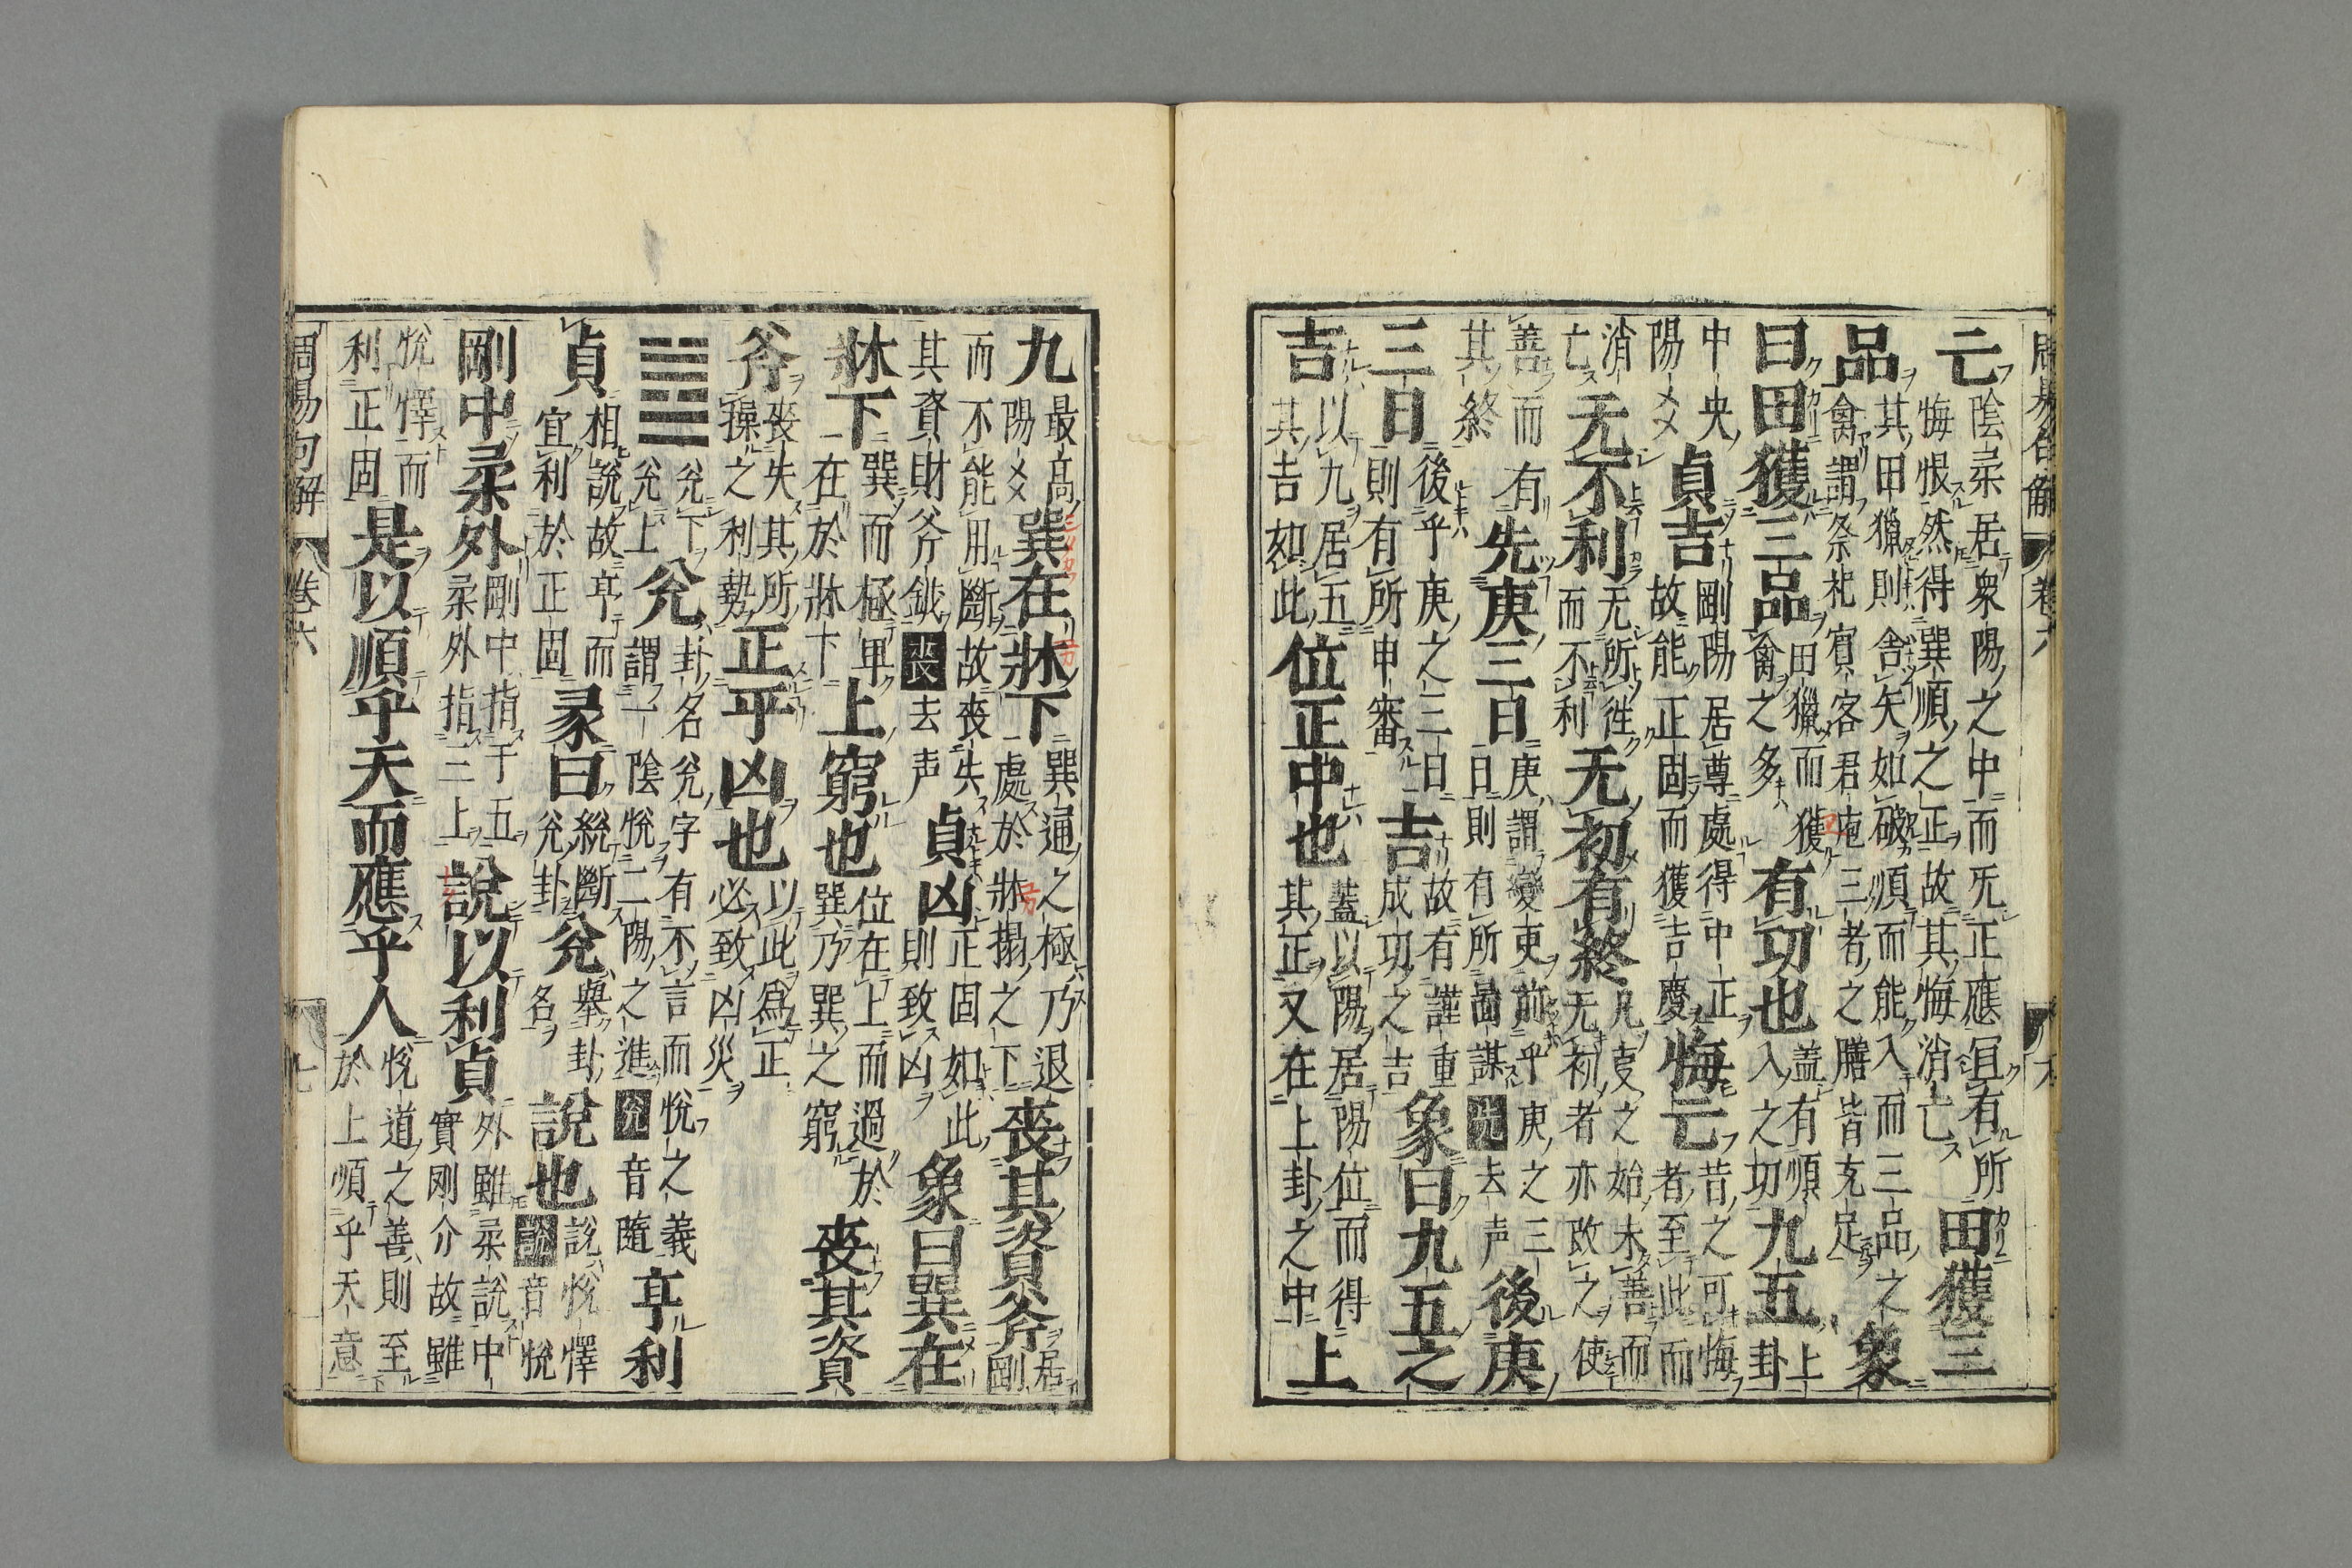 周易句解 卷六
亡陰柔居衆陽之中而旡正應冝有所悔恨然得巽順之正故其悔消亡田獲三
品其田獵則舍矢如破順而能入而三品之禽謂祭祀賓客君庖三者之膳皆充足象
曰田獲三品田獵而獲禽之多有功也盖有順入之功九五上卦
中央陽爻貞吉剛陽居尊處得中正故能正固而獲吉慶悔亡昔之可悔者至此而
消亡无不利而无所往而不利无初有終凡㕝之始未善而无初者亦改之使
善而有其終先庚三日庚謂變更前乎庚之三日則有所啚謀先去声後庚
三日後乎庚之三日則有所申審吉故有謹重成功之吉象曰九五之
吉以九居五其吉如此位正中也蓋以陽居陽位而得其正又在上卦之中上
九最高陽爻巽在牀下巽逼之極乃退處於牀搨之下喪其資斧居剛
而不能用斷故喪失其資財斧鉞喪去声貞凶正固如此則致凶象曰巽在
牀下巽而極卑在於牀下上窮也位在上而過於巽乃巽之窮喪其資
斧喪失其所操之利勢正乎凶也以此爲正必致凶災
䷹兌下兌上兌卦名兌字有不言而悅之義謂一陰悅二陽之進兌音隨亨利
貞相說故亨而宜利於正固彖曰統斷兌卦兌舉卦名說也說悅懌說音悅
剛中柔外剛中指二五柔外指三上說以利貞外雖柔說中實剛介故雖
悅懌而利正固是以順乎天而應乎人悅道之善則至於上順乎天意
周易句解 卷六 七